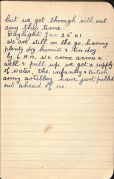 but we get through without
any this time.
Daylight Jan 26th 41
We are still on the go, having
plenty dog biscuits & tin dog
by 6 A.M. we come across a
well & pull up. we get a supply
of water, the infantry & British
army artillery have just pulled
out ahead of us.